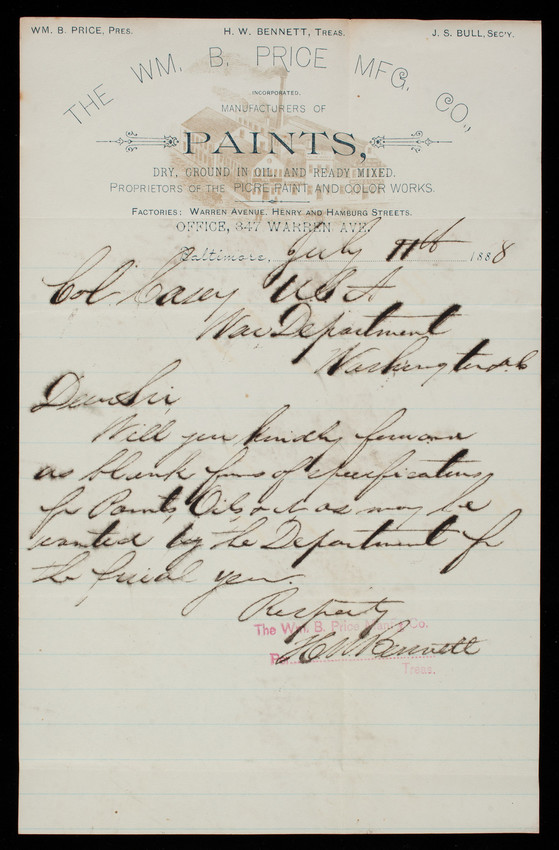 WM. B. PRICE, PRES. H. W. BENNETT, TREAS. J. S. BULL, SEC'Y.
THE WM. B. PRICE MFG. CO.,
INCORPORATED.
MANUFACTURERS OF
PAINTS,
DRY, GROUND IN OIL, AND READY MIXED.
PROPRIETORS OF THE PICRE PAINT AND COLOR WORKS.
FACTORIES: WARREN AVENUE, HENRY AND HAMBURG STREETS.
OFFICE, 847 WARREN AVE.
Baltimore, July 11th 1888
Col Casey U.S.A
War Department
Washington D.C
Dear Sir
Will you kindly forward
us blank forms of specifications
for Paints, Oils, &c as may be
wanted by the Department for
the fiscal year.
Respectly
The Wm. B. Price Manf'g Co.
Per H W Bennett
Treas.